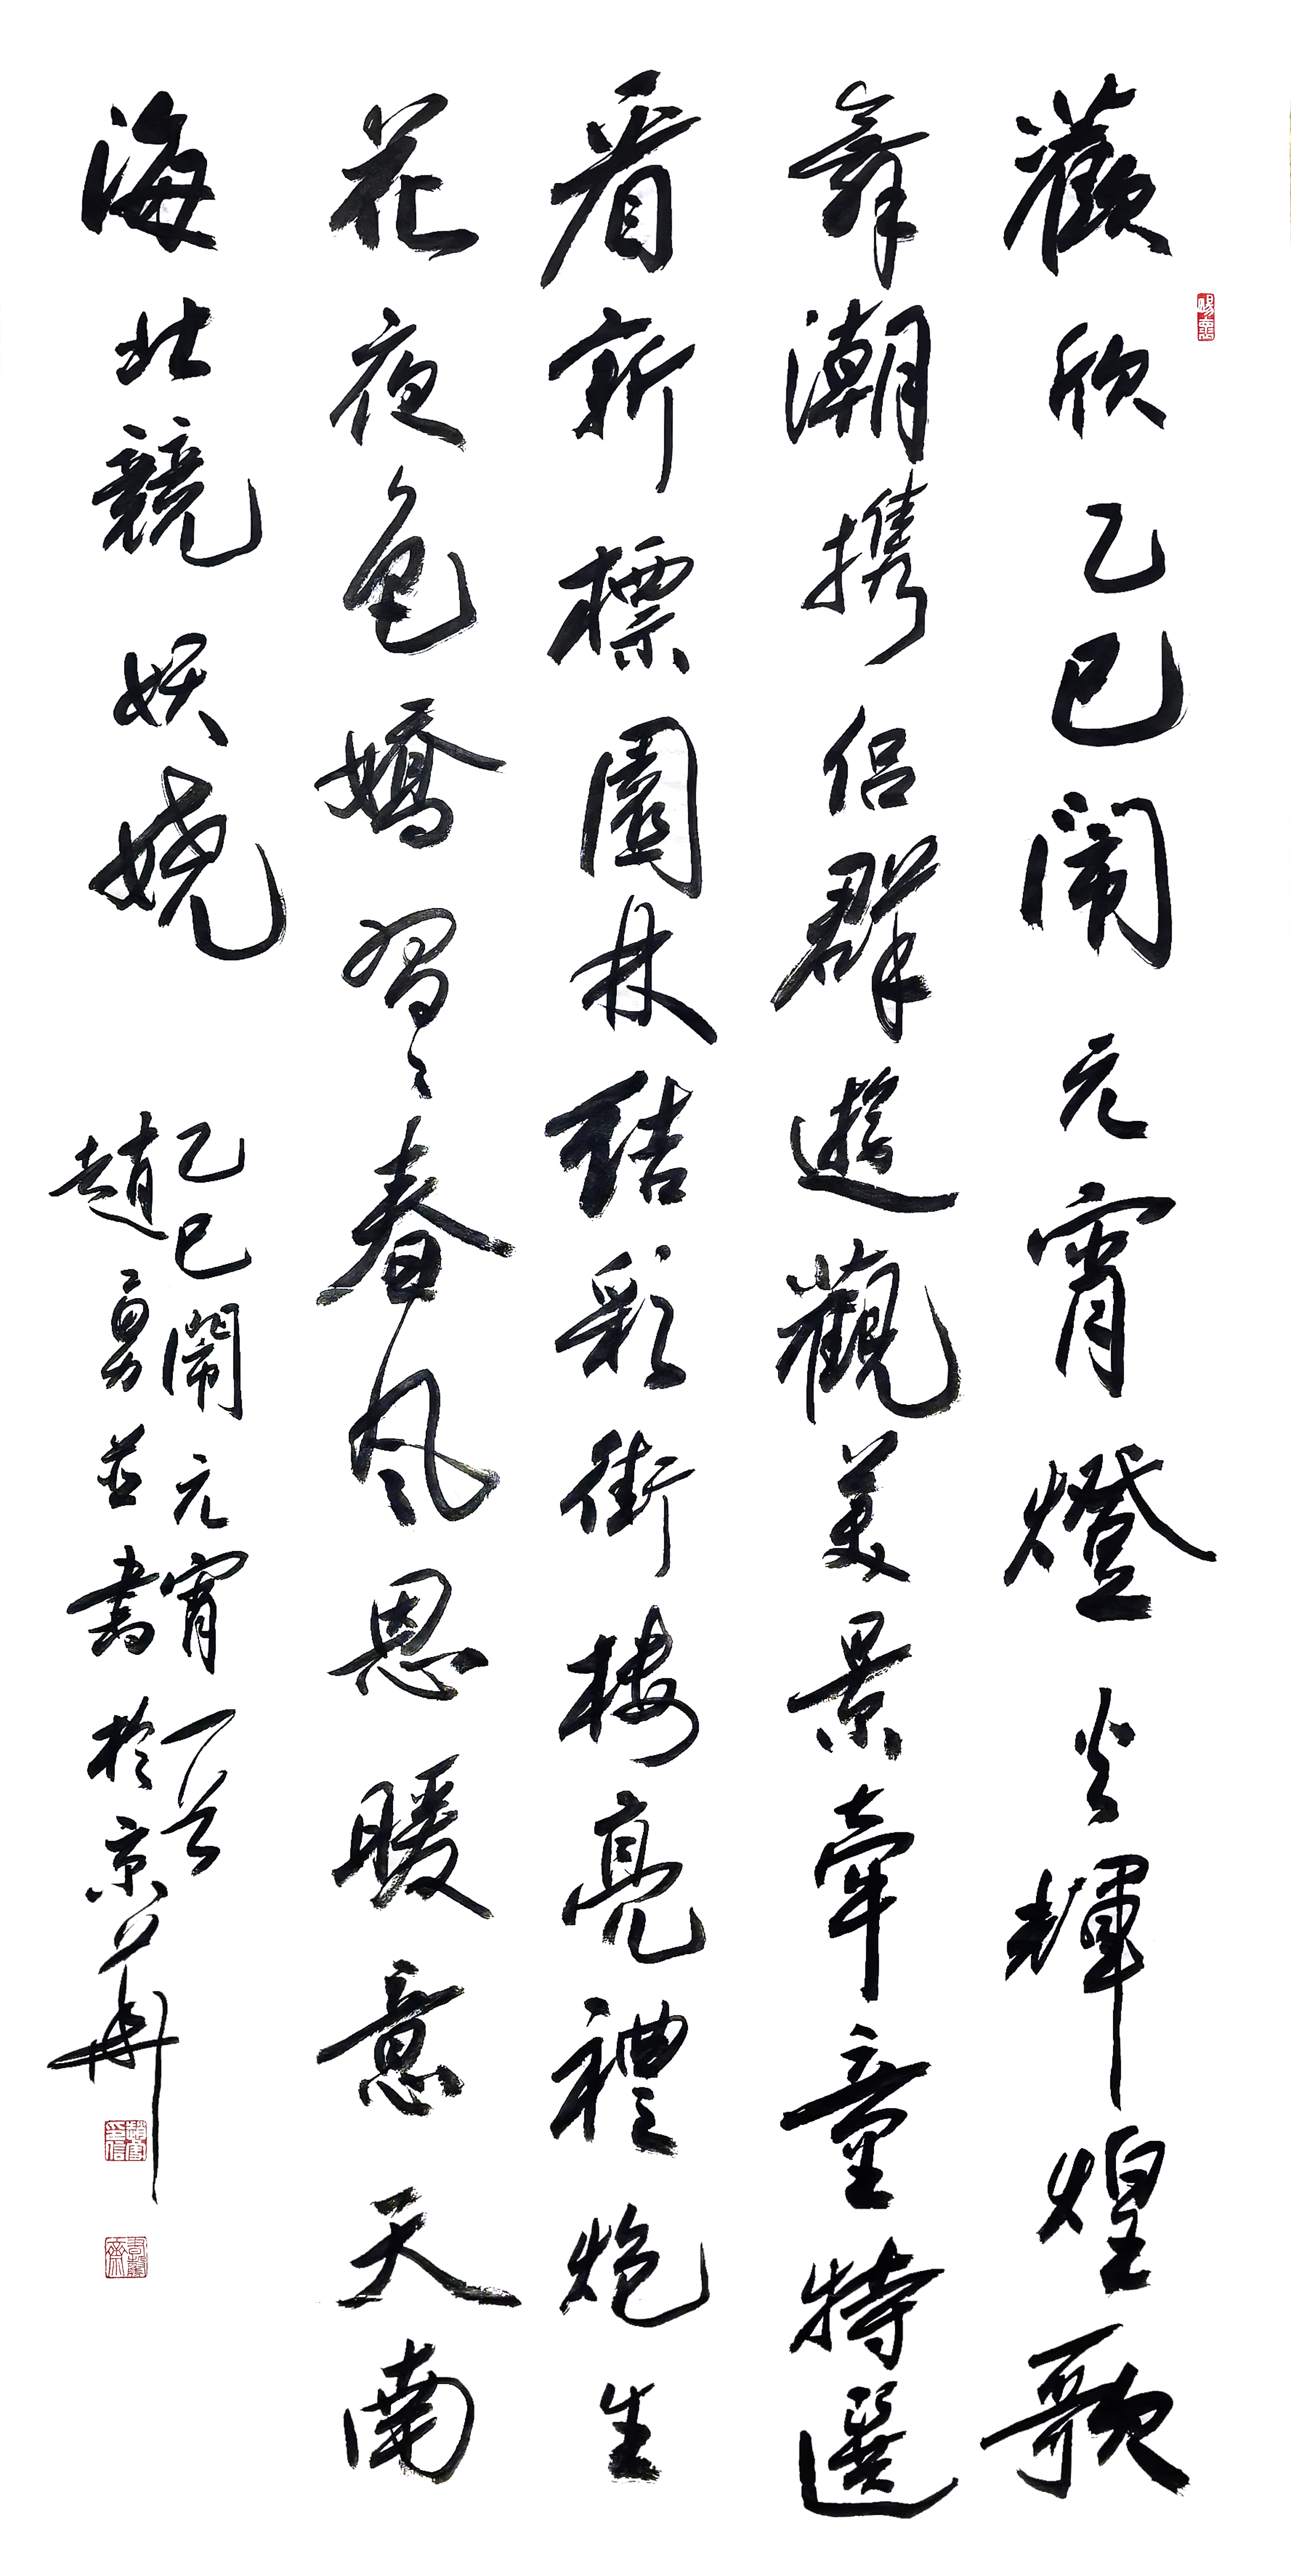 歡欣乙巳闹元宵燈火輝煌歌
舞潮携侣群遊觀美景牽童特選
看新標園林結彩街楼亮禮炮生
花夜色嬌習〻春风恩暖意天南
海北競妖嬈
乙巳鬧元宵一首
趙勇並書於京華